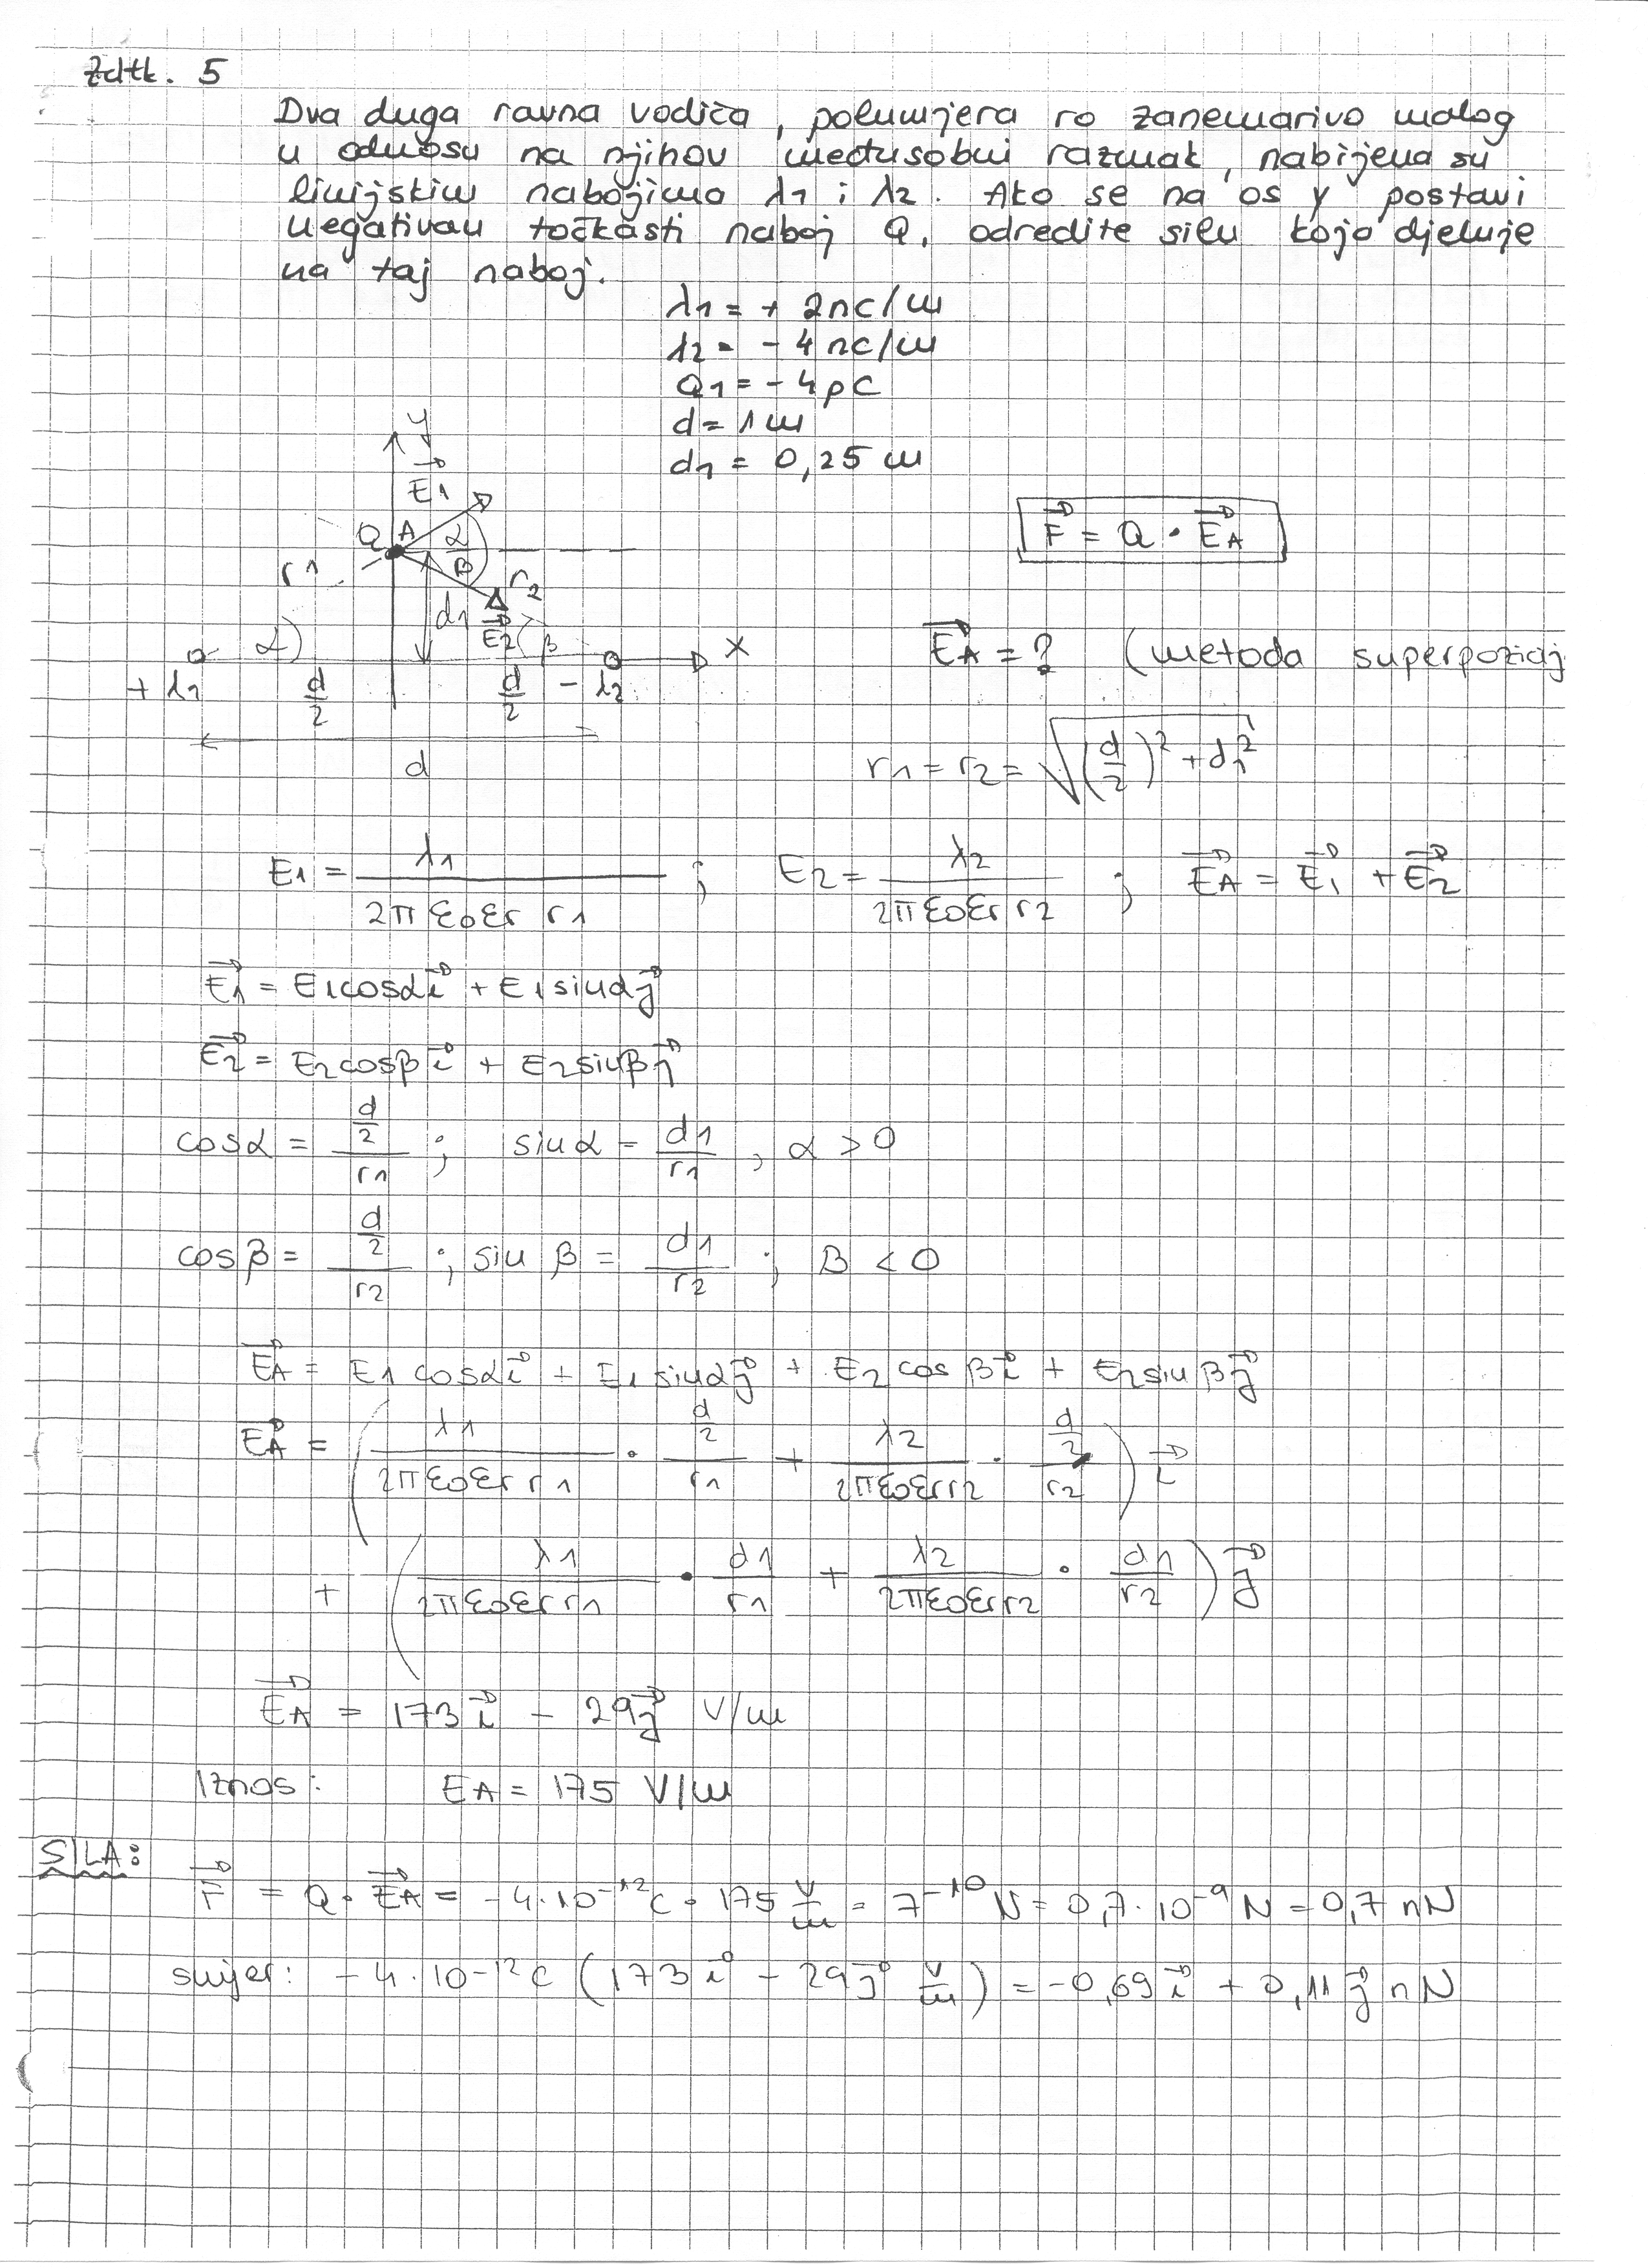 Zdtk. 5
Dva duga ravna vodiča, polumjera ro zanemarivo malog
u odnosu na njihov međusobni razmak, nabijena su
linijskim nabojima λ1 i λ2. Ako se na os y postavi
negativan točkasti naboj Q, odredite silu koja djeluje
na taj naboj.
λ1 = + 2nC/m
λ2 = - 4nC/m
Q1 = - 4pC
d = 1m
d1 = 0,25 m
y
E1
Q A α
β
r1 r2
d1
E2 β
α
x
+ λ1 d/2 d/2 - λ2
d
F = Q · EA
EA = ? (metoda superpozicij
r1 = r2 = √((d/2)² + d1²)
E1 = λ1/(2πε0εr r1) ; E2 = λ2/(2πε0εr r2) ; EA = E1 + E2
E1 = E1cosα i + E1sinα j
E2 = E2cosβ i + E2sinβ j
cosα = (d/2)/r1 ; sinα = d1/r1 , α > 0
cosβ = (d/2)/r2 ; sin β = d1/r2 ; β < 0
EA = E1 cosα i + E1 sinα j + E2 cos β i + E2 sin β j
EA = ( λ1/(2πε0εr r1) · (d/2)/r1 + λ2/(2πε0εr r2) · (d/2)/r2 ) i
+ ( λ1/(2πε0εr r1) · d1/r1 + λ2/(2πε0εr r2) · d1/r2 ) j
EA = 173 i - 29 j V/m
Iznos: EA = 175 V/m
SILA:
F = Q · EA = -4·10⁻¹²C · 175 V/m = 7⁻¹⁰ N = 0,7·10⁻⁹ N = 0,7 nN
smjer: -4·10⁻¹²C (173 i - 29 j V/m) = -0,69 i + 0,11 j nN